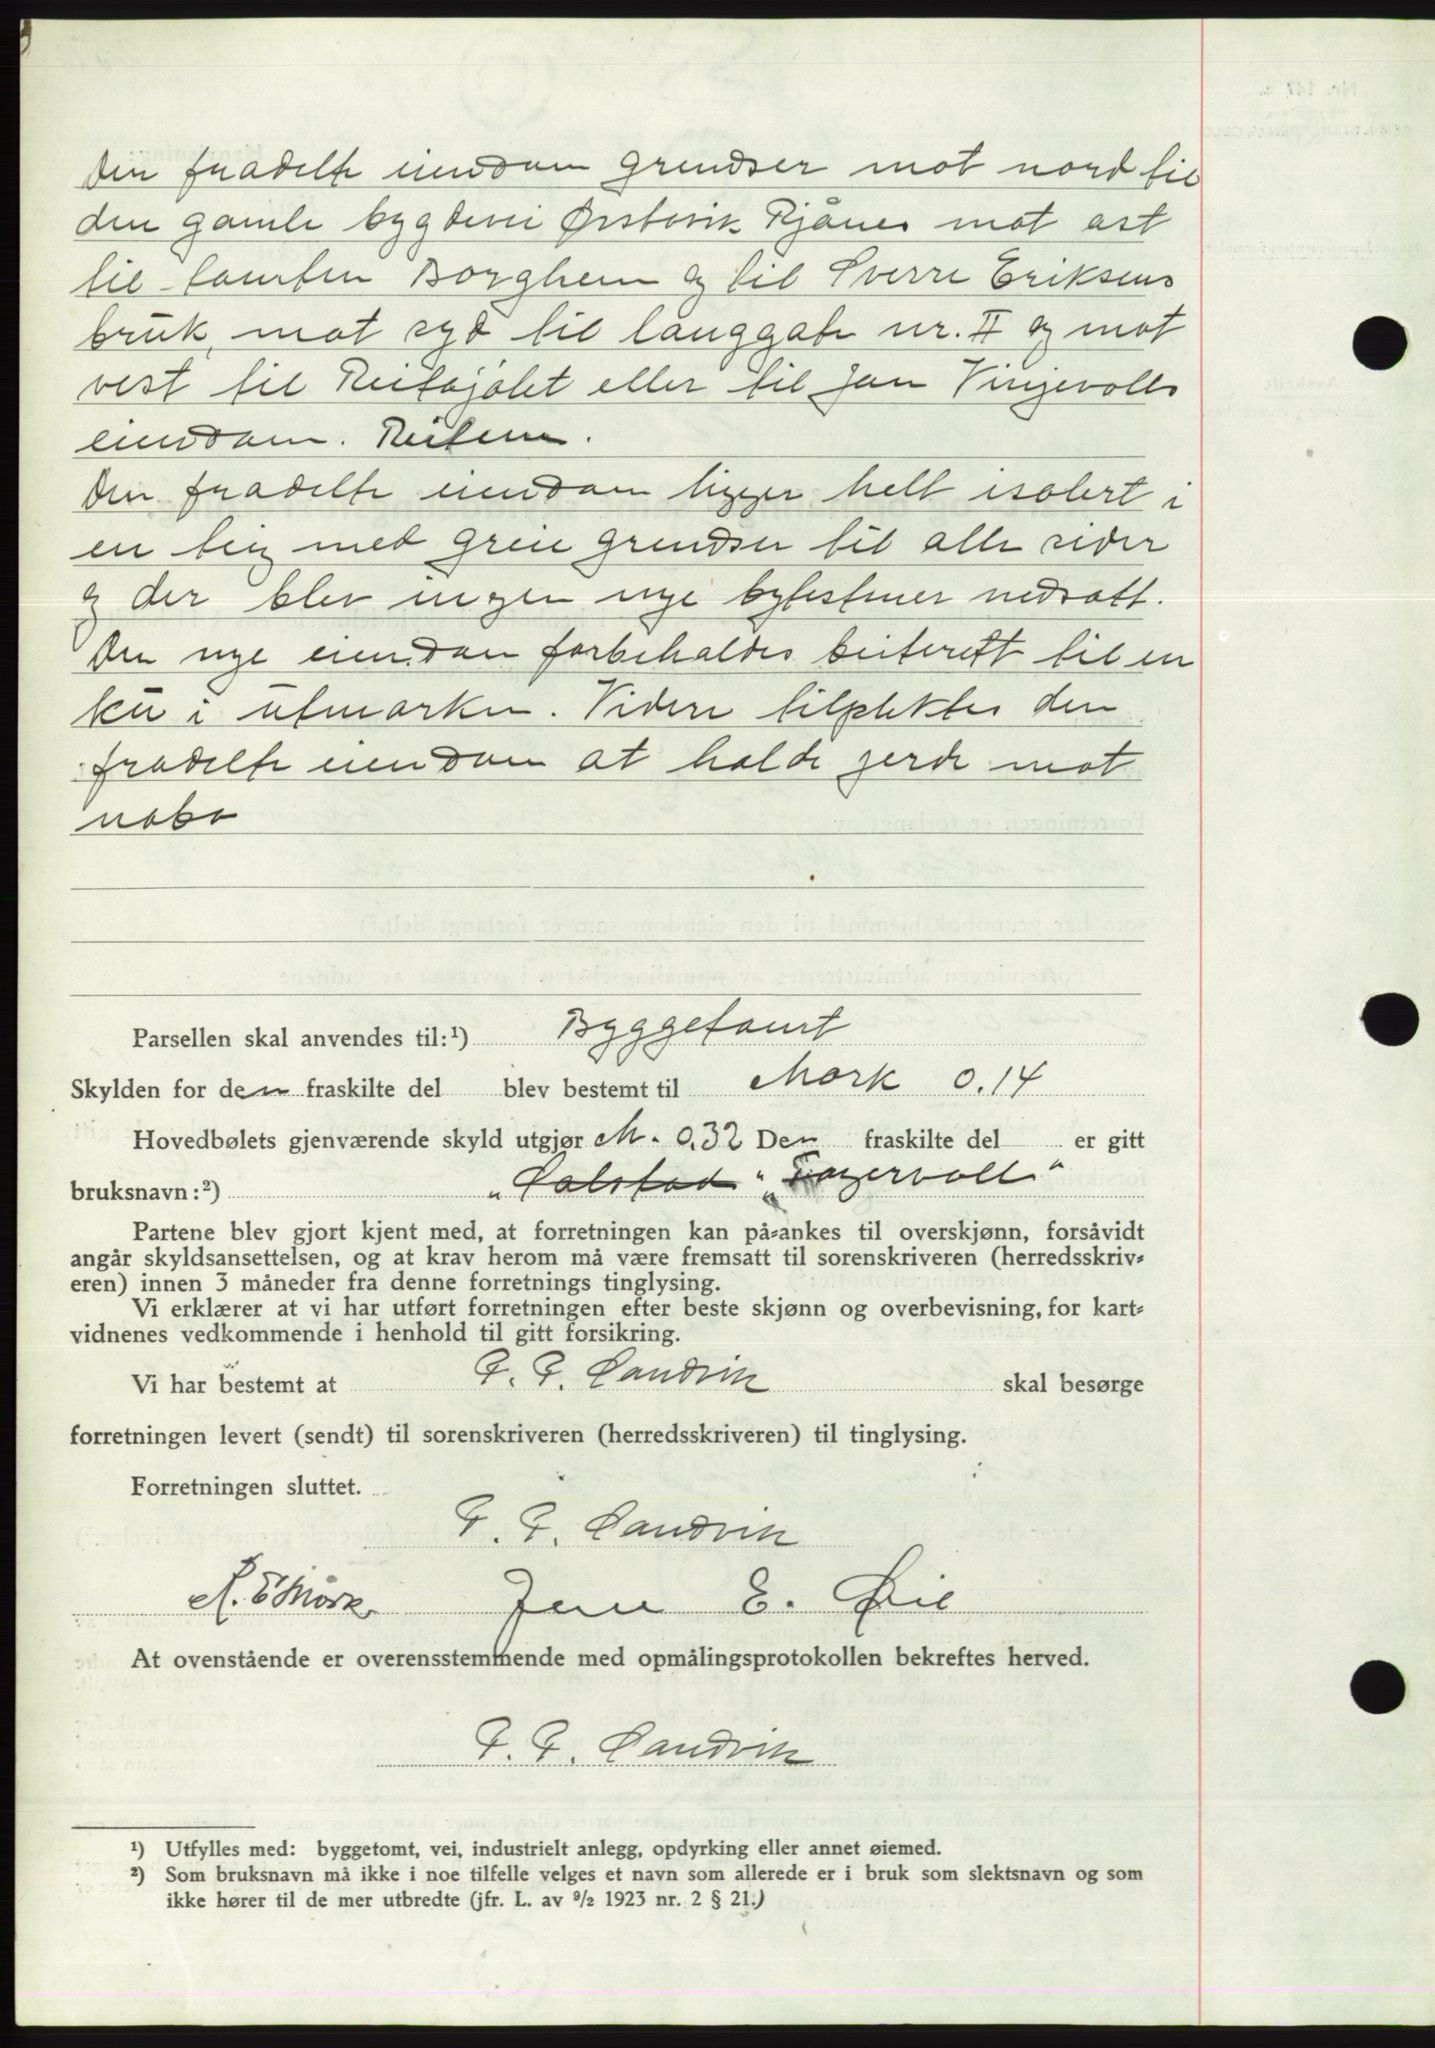 Den fradelte eiendom grendser mot nord til
den gamle bygdevei Ørstavik Rjånes mot øst
til tomten Borghem og til Sverre Eriksens
bruk, mot syd til langgate nr. II og mot
vest til Reitajølet eller til Jon Vinjevolls
eiendom. Reitene.
Den fradelte eiendom ligger helt isolert i
en teig med greie grendser til alle sider
og der blev ingen nye bytestener nedsatt.
Den nye eiendom forbeholdes beiterett til en
ku i utmarken. Videre tilpliktes den
fradelte eiendom at holde gerde mot
nabo
Parsellen skal anvendes til:¹) Byggetomt
Skylden for den fraskilte del blev bestemt til Mork 0.14
Hovedbølets gjenværende skyld utgjør M. 0,32 Den fraskilte del er gitt
bruksnavn:²) "Solstad" "Fagervoll"
Partene blev gjort kjent med, at forretningen kan på-ankes til overskjønn, forsåvidt
angår skyldsansettelsen, og at krav herom må være fremsatt til sorenskriveren (herredsskriv-
eren) innen 3 måneder fra denne forretnings tinglysing.
Vi erklærer at vi har utført forretningen efter beste skjønn og overbevisning, for kart-
vidnenes vedkommende i henhold til gitt forsikring.
Vi har bestemt at F. F. Sandvik skal besørge
forretningen levert (sendt) til sorenskriveren (herredsskriveren) til tinglysing.
Forretningen sluttet.
F. F. Sandvik
A. E Mork Jens E. Øie
At ovenstående er overensstemmende med opmålingsprotokollen bekreftes herved.
F. F. Sandvik
¹) Utfylles med: byggetomt, vei, industrielt anlegg, opdyrking eller annet øiemed.
²) Som bruksnavn må ikke i noe tilfelle velges et navn som allerede er i bruk som slektsnavn og som
ikke hører til de mer utbredte (jfr. L. av ⁹/₂ 1923 nr. 2 § 21.)